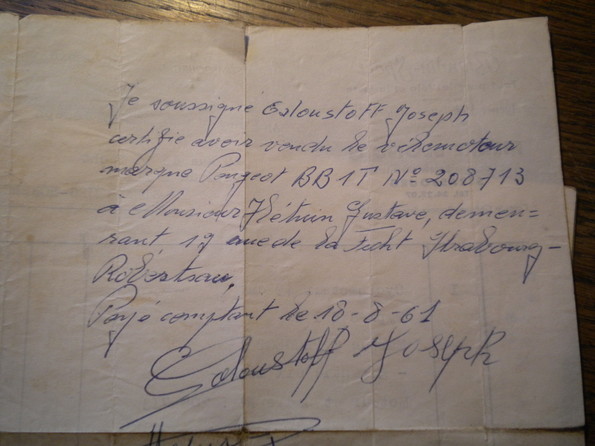 Je soussigné Galoustoff Joseph
certifie avoir vendu le vélomoteur
marque Peugeot BB1T N° 208713
à Monsieur Gustave, demeu=
rant 19 rue de la Strasbourg-
Robertsau,
Payé comptant le 18-8-61
Galoustoff Joseph